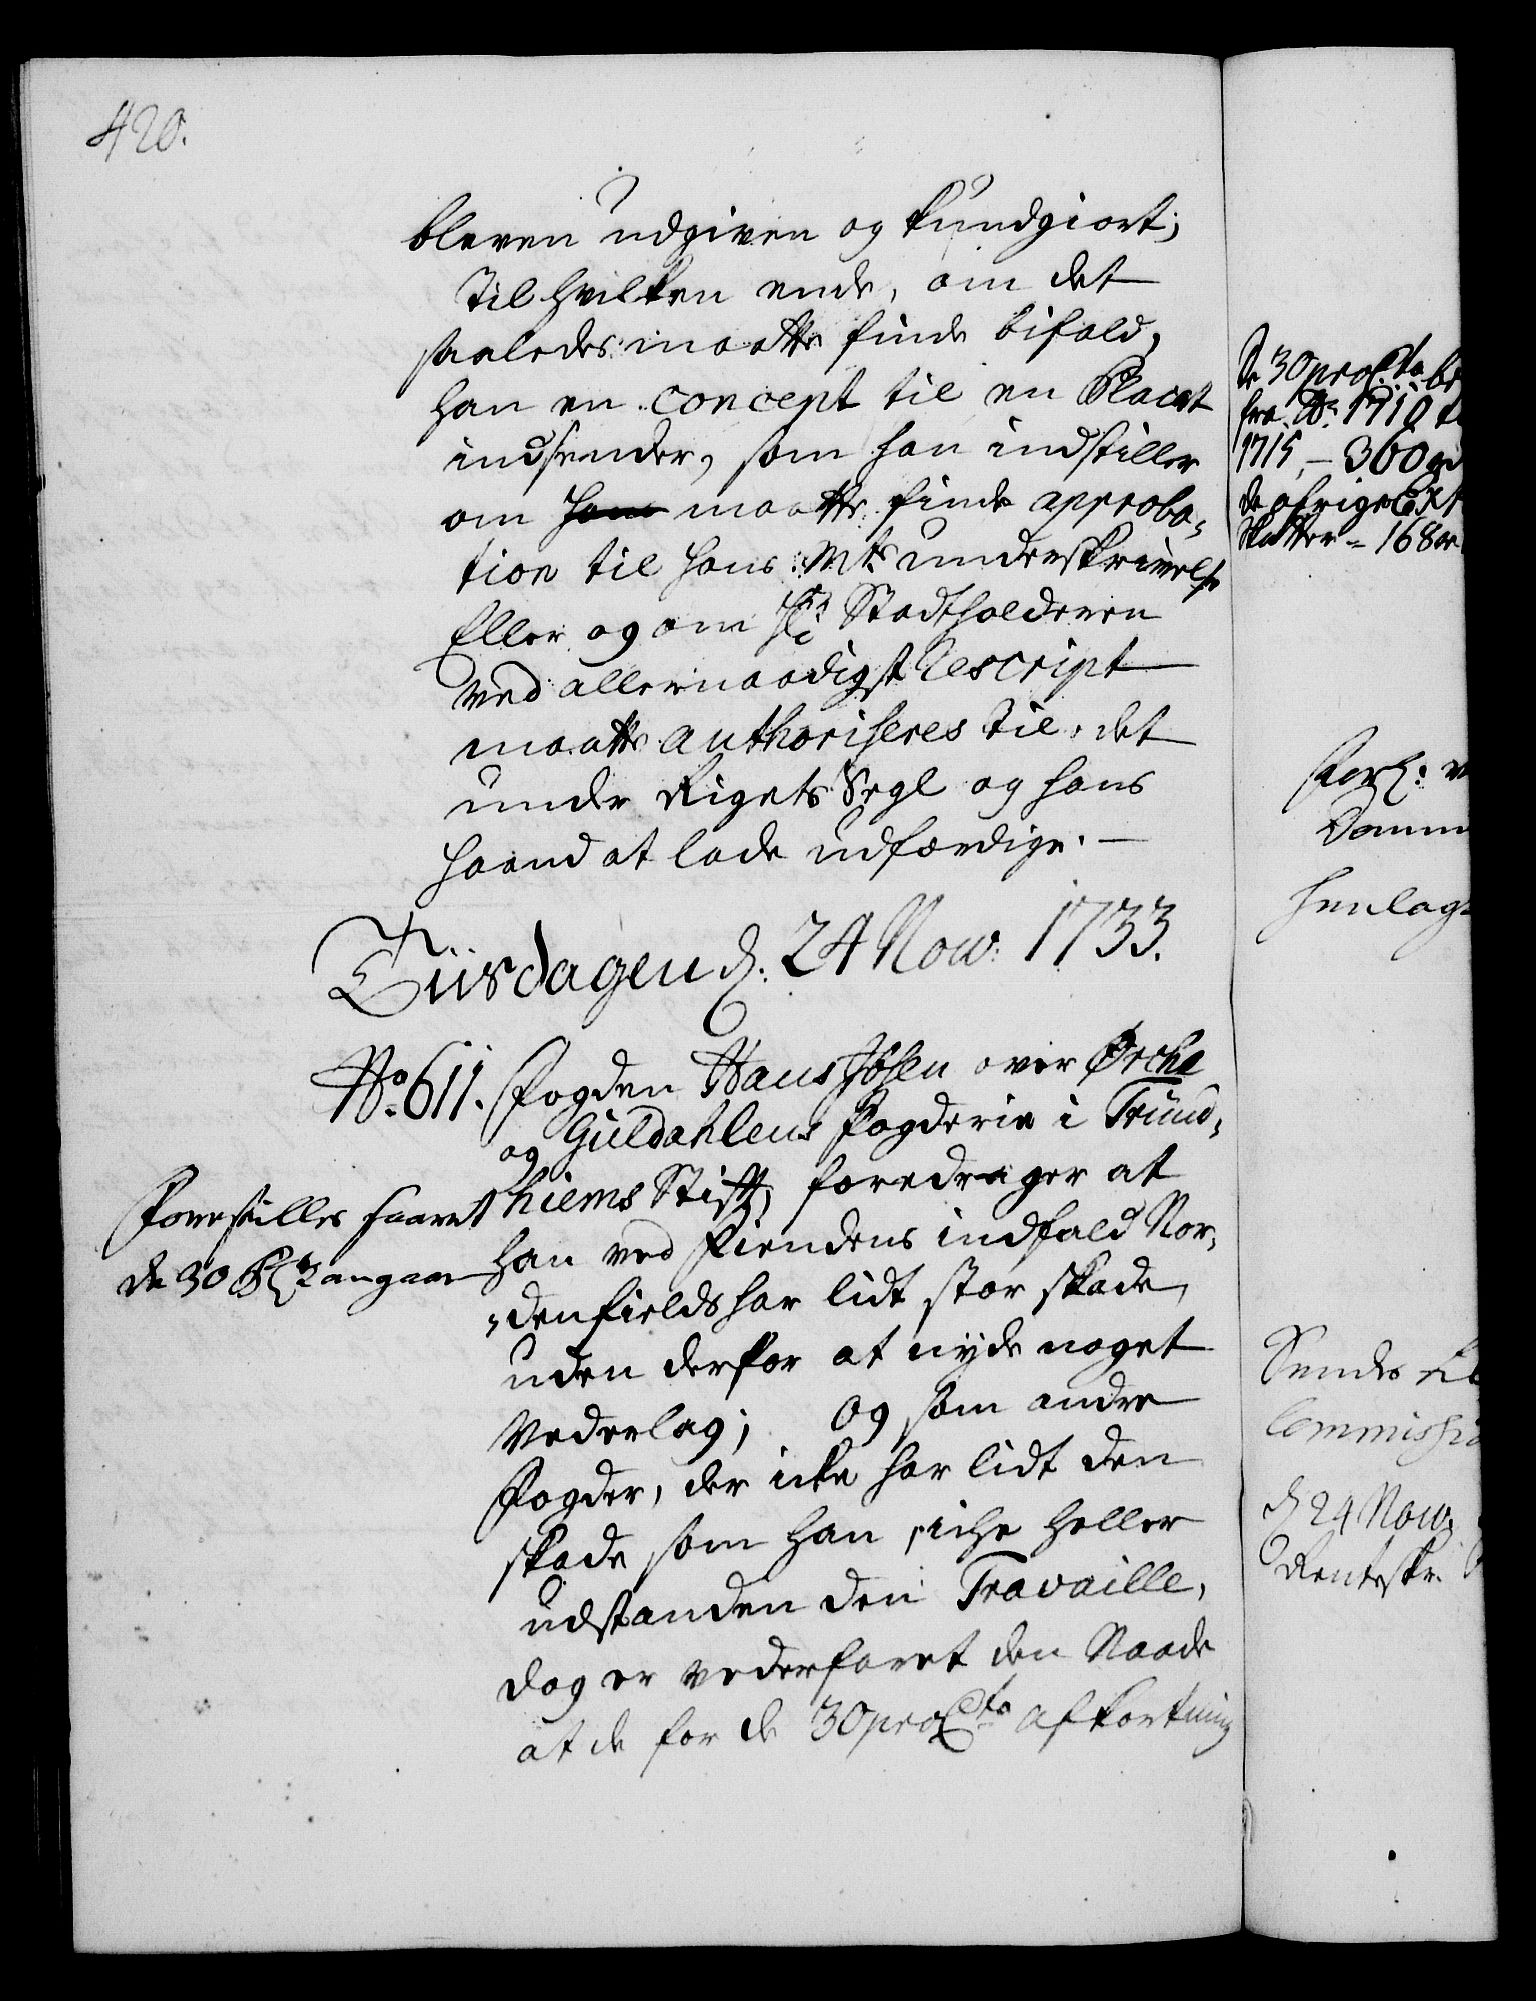 420.
bleven udgiven og kundgiort;
til hvilken ende, om det
saaledes maatte finde bifald,
han en concept til en Placat
indsender, som han indstiller
om maatte finde approba-
tion til hans Mts underskrivelse
Eller og om Stadtholderen
ved allernaadigst Rescript
maatte authoriseres til det
under Rigets Segl og hans
haand at lade udfærdige. —
Tiisdagen d: 24 Nov: 1733.
No 611. Fogden Hans Ibsen over Ørche
og Guldahlens Fogderie i Trund-
hiems Stift, foredrager at
han ved Fiendens indfald Nor-
denfields har lidt stor skade,
uden derfor at nyde noget
Vederlag; Og som andre
Fogder, der icke har lidt den
skade som han, iche heller
udstanden den Travaille,
dog er vederfaret den Naade
at de for de 30 pro Cto afkortning
Forestilles saavit
de 30 angaar
De 30 pro Cto
fra Ao 1710
1715, — 360
de øfrige Ext
Skatter = 168
Danm
henlag
Sendes
Commissio
d 24 Nov:
Renteskr.